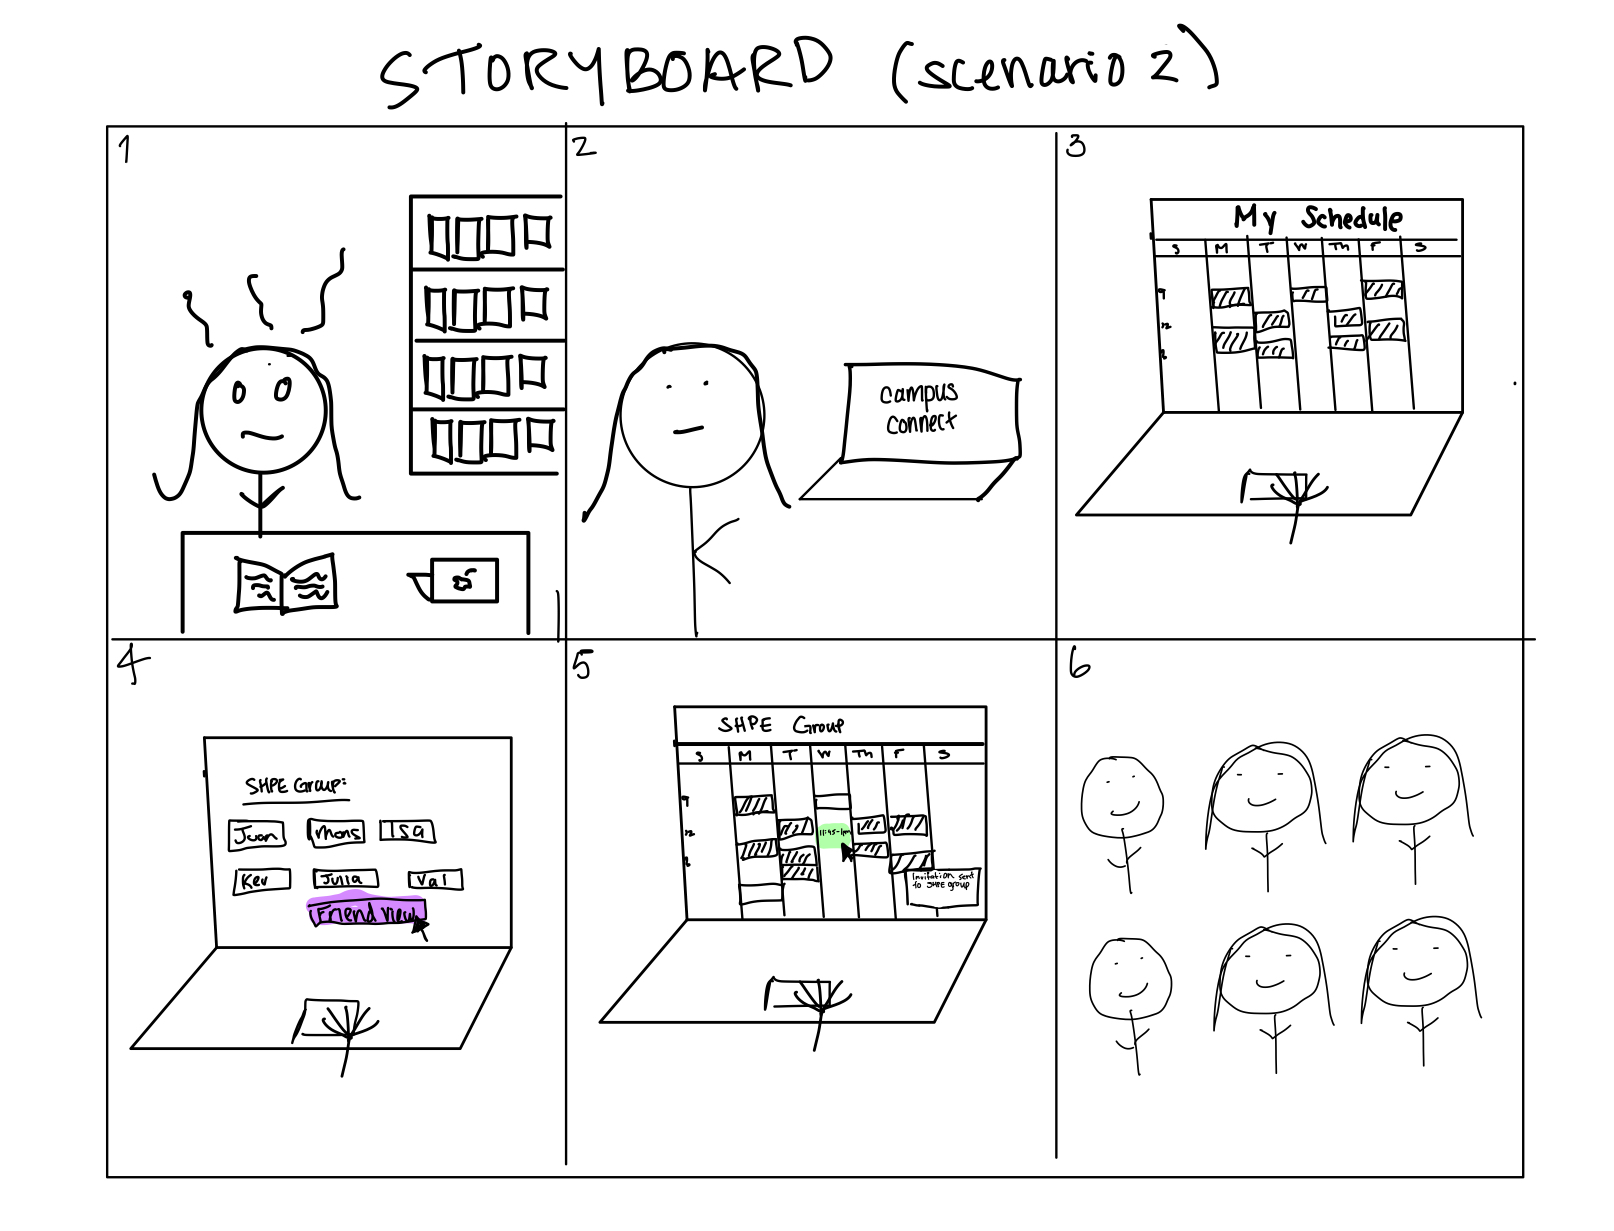 STORYBOARD (scenario 2)
1
2
campus
connect
3
My Schedule
S M T W Th F S
9
12
2
4
SHPE Group:
Juan Mons Isa
Kev Julia Val
Friend View
5
SHPE Group
S M T W Th F S
9
12
11:45-1pm
2
Invitation sent
to SHPE group
6